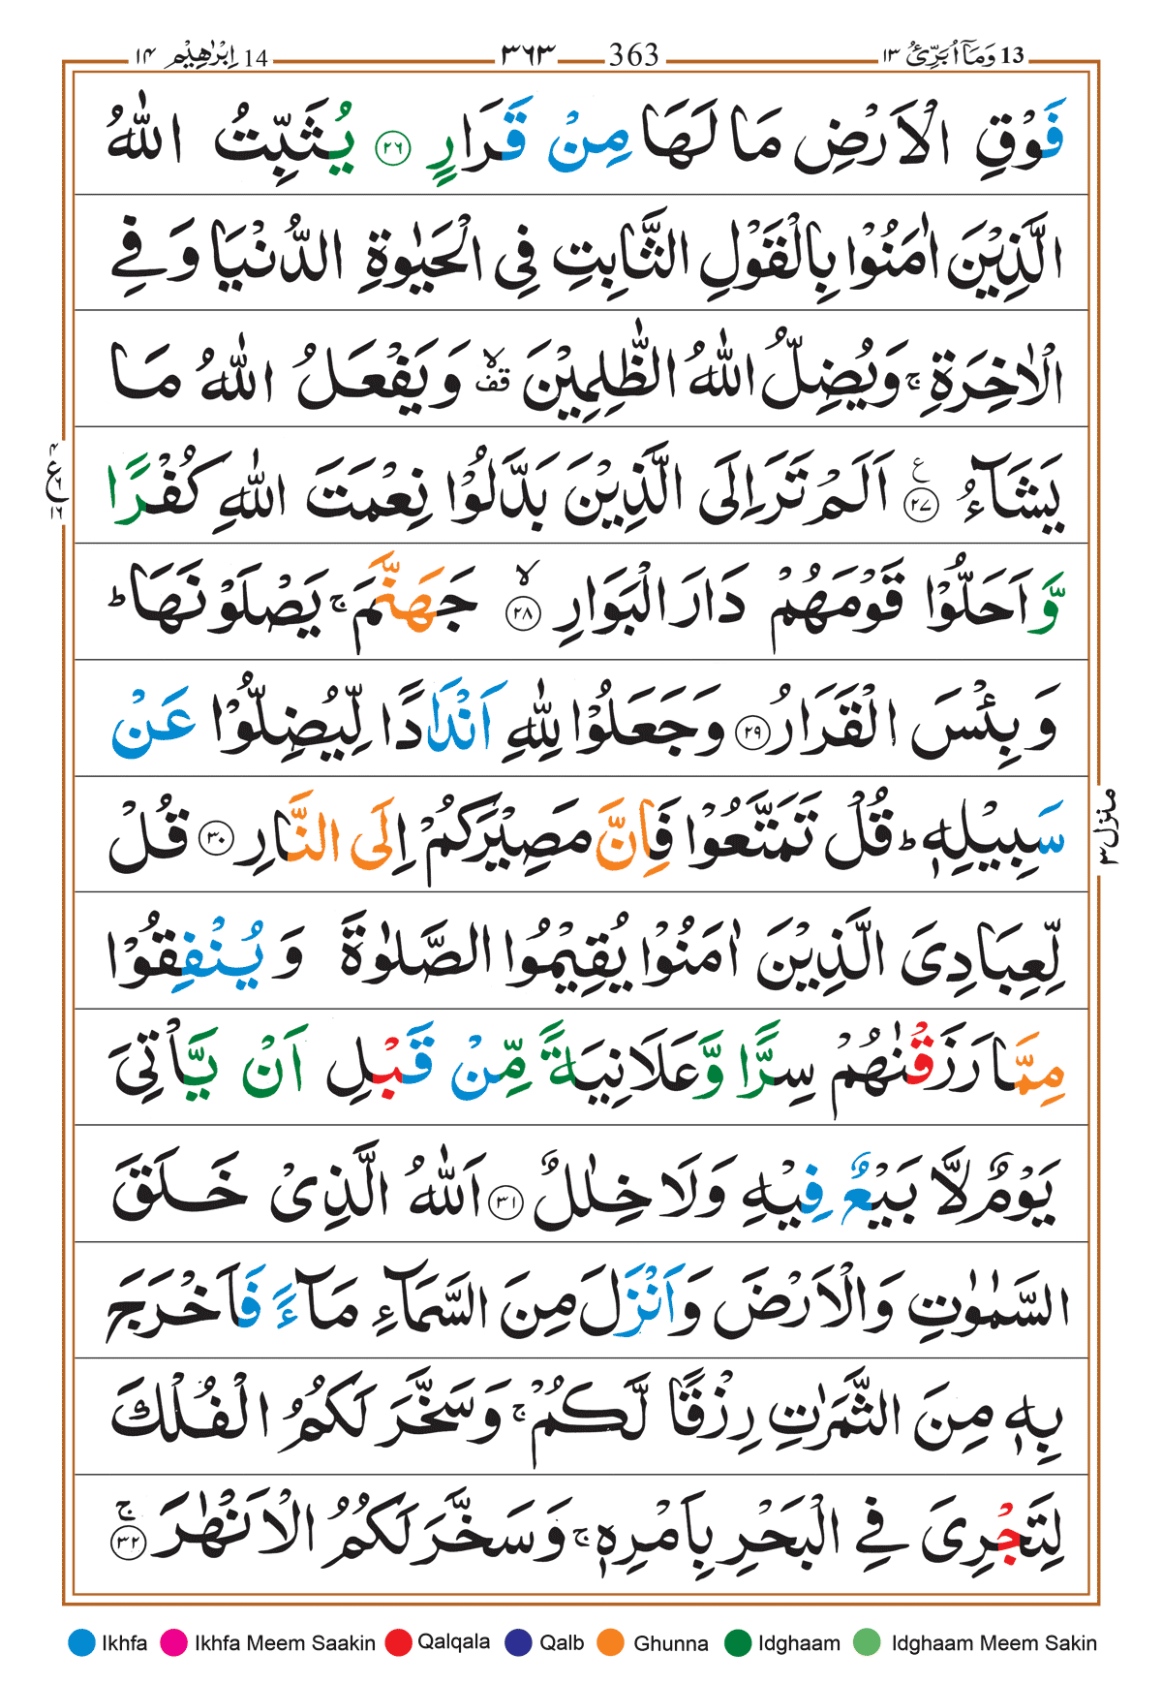 13 وَمَآ اُبَرِّئُ ١٣ 363 ٣٦٣ 14 اِبْرٰهِيْم ١٤
فَوْقِ الْاَرْضِ مَا لَهَا مِنْ قَرَارٍ ۝٢٦ يُثَبِّتُ اللّٰهُ
الَّذِيْنَ اٰمَنُوْا بِالْقَوْلِ الثَّابِتِ فِى الْحَيٰوةِ الدُّنْيَا وَفِى
الْاٰخِرَةِ ۚ وَيُضِلُّ اللّٰهُ الظّٰلِمِيْنَ ۙ قف وَيَفْعَلُ اللّٰهُ مَا
يَشَآءُ ۝٢٧ ع اَلَمْ تَرَ اِلَى الَّذِيْنَ بَدَّلُوْا نِعْمَتَ اللّٰهِ كُفْرًا
وَّاَحَلُّوْا قَوْمَهُمْ دَارَ الْبَوَارِ ۙ ۝٢٨ جَهَنَّمَ ۚ يَصْلَوْنَهَا ؕ
وَبِئْسَ الْقَرَارُ ۝٢٩ وَجَعَلُوْا لِلّٰهِ اَنْدَادًا لِّيُضِلُّوْا عَنْ
سَبِيْلِهٖ ؕ قُلْ تَمَتَّعُوْا فَاِنَّ مَصِيْرَكُمْ اِلَى النَّارِ ۝٣٠ قُلْ
لِّعِبَادِىَ الَّذِيْنَ اٰمَنُوْا يُقِيْمُوا الصَّلٰوةَ وَيُنْفِقُوْا
مِمَّا رَزَقْنٰهُمْ سِرًّا وَّعَلَانِيَةً مِّنْ قَبْلِ اَنْ يَّاْتِىَ
يَوْمٌ لَّا بَيْعٌ فِيْهِ وَلَا خِلٰلٌ ۝٣١ اَللّٰهُ الَّذِىْ خَلَقَ
السَّمٰوٰتِ وَالْاَرْضَ وَاَنْزَلَ مِنَ السَّمَآءِ مَآءً فَاَخْرَجَ
بِهٖ مِنَ الثَّمَرٰتِ رِزْقًا لَّكُمْ ۚ وَسَخَّرَ لَكُمُ الْفُلْكَ
لِتَجْرِىَ فِى الْبَحْرِ بِاَمْرِهٖ ۚ وَسَخَّرَ لَكُمُ الْاَنْهٰرَ ۚ ۝٣٢
٤ ع ٦ ١٦
منزل ٣
Ikhfa Ikhfa Meem Saakin Qalqala Qalb Ghunna Idghaam Idghaam Meem Sakin